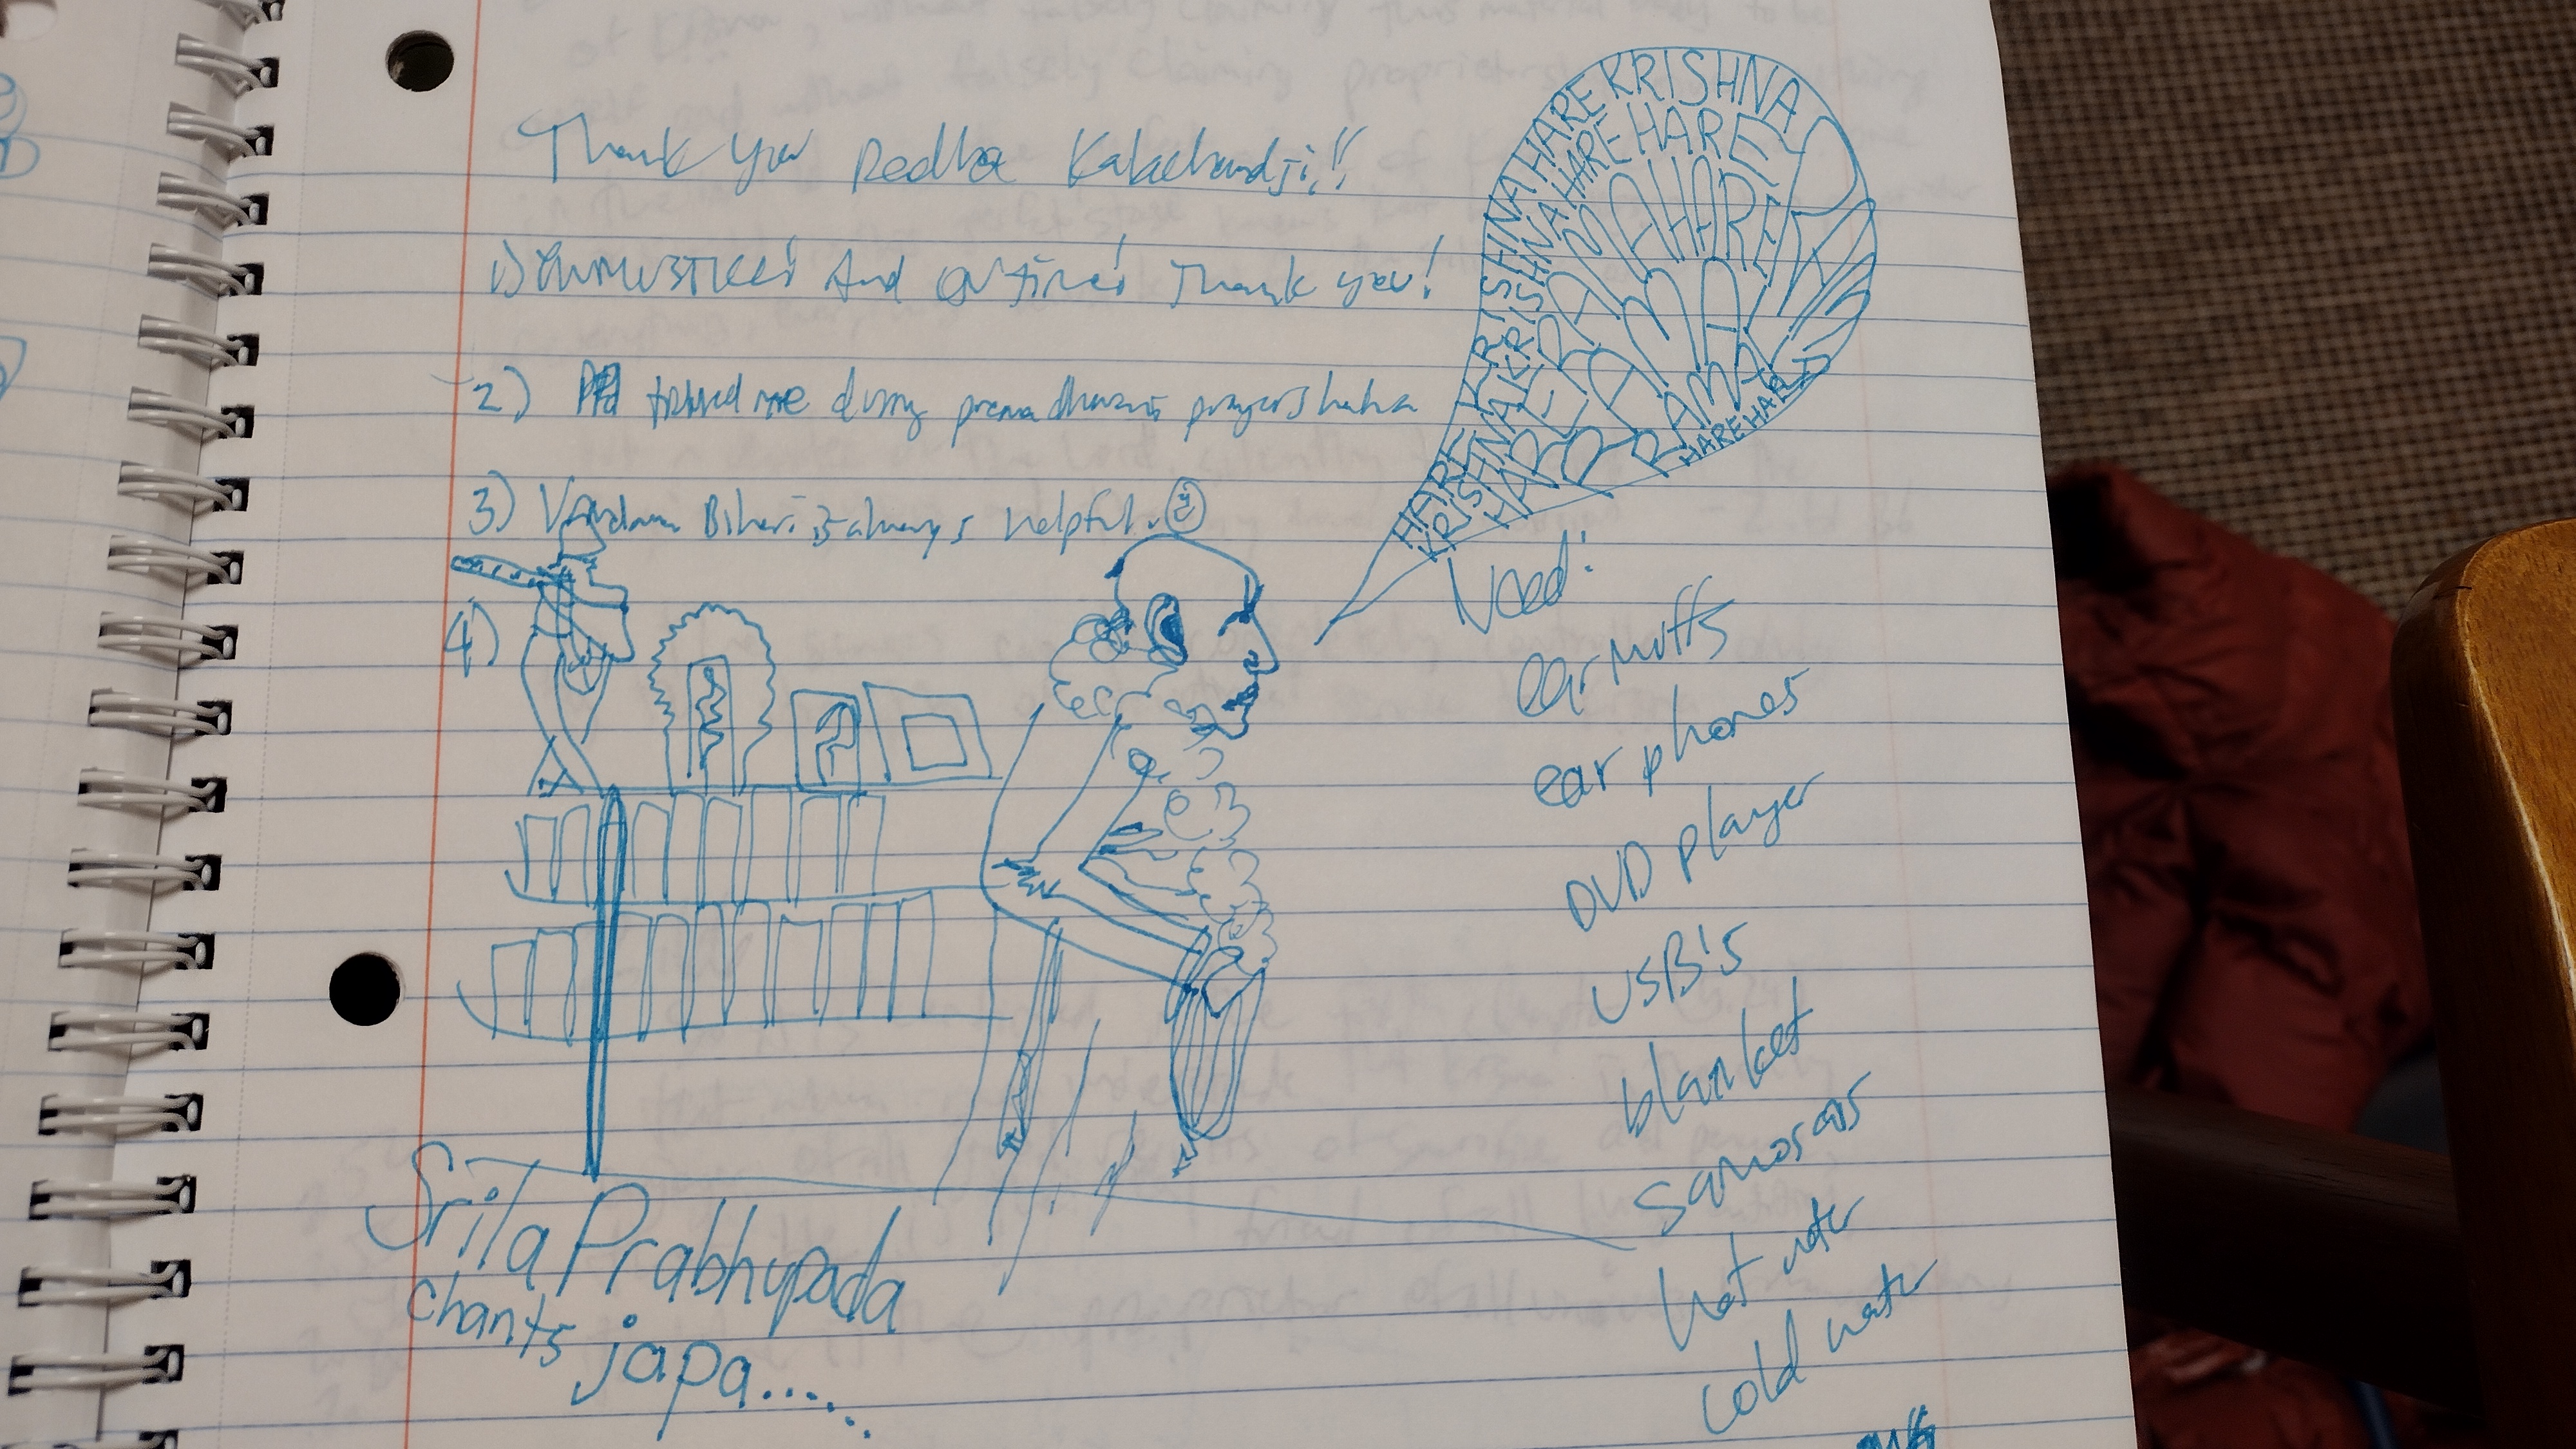 Thank you Radha Kalachandji!!
1) And on time! Thank you!
2) me during prema dhvani prayers haha
3) Vrndavan Bihari is always helpful.
4)
HARE KRISHNA HARE KRISHNA
KRISHNA KRISHNA HARE HARE
HARE RAMA HARE
RAMA RAMA
HARE HARE
Need:
ear muffs
ear phones
DVD player
USB's
blanket
samosas
hot water
cold water
Srila Prabhupada
chants japa.....